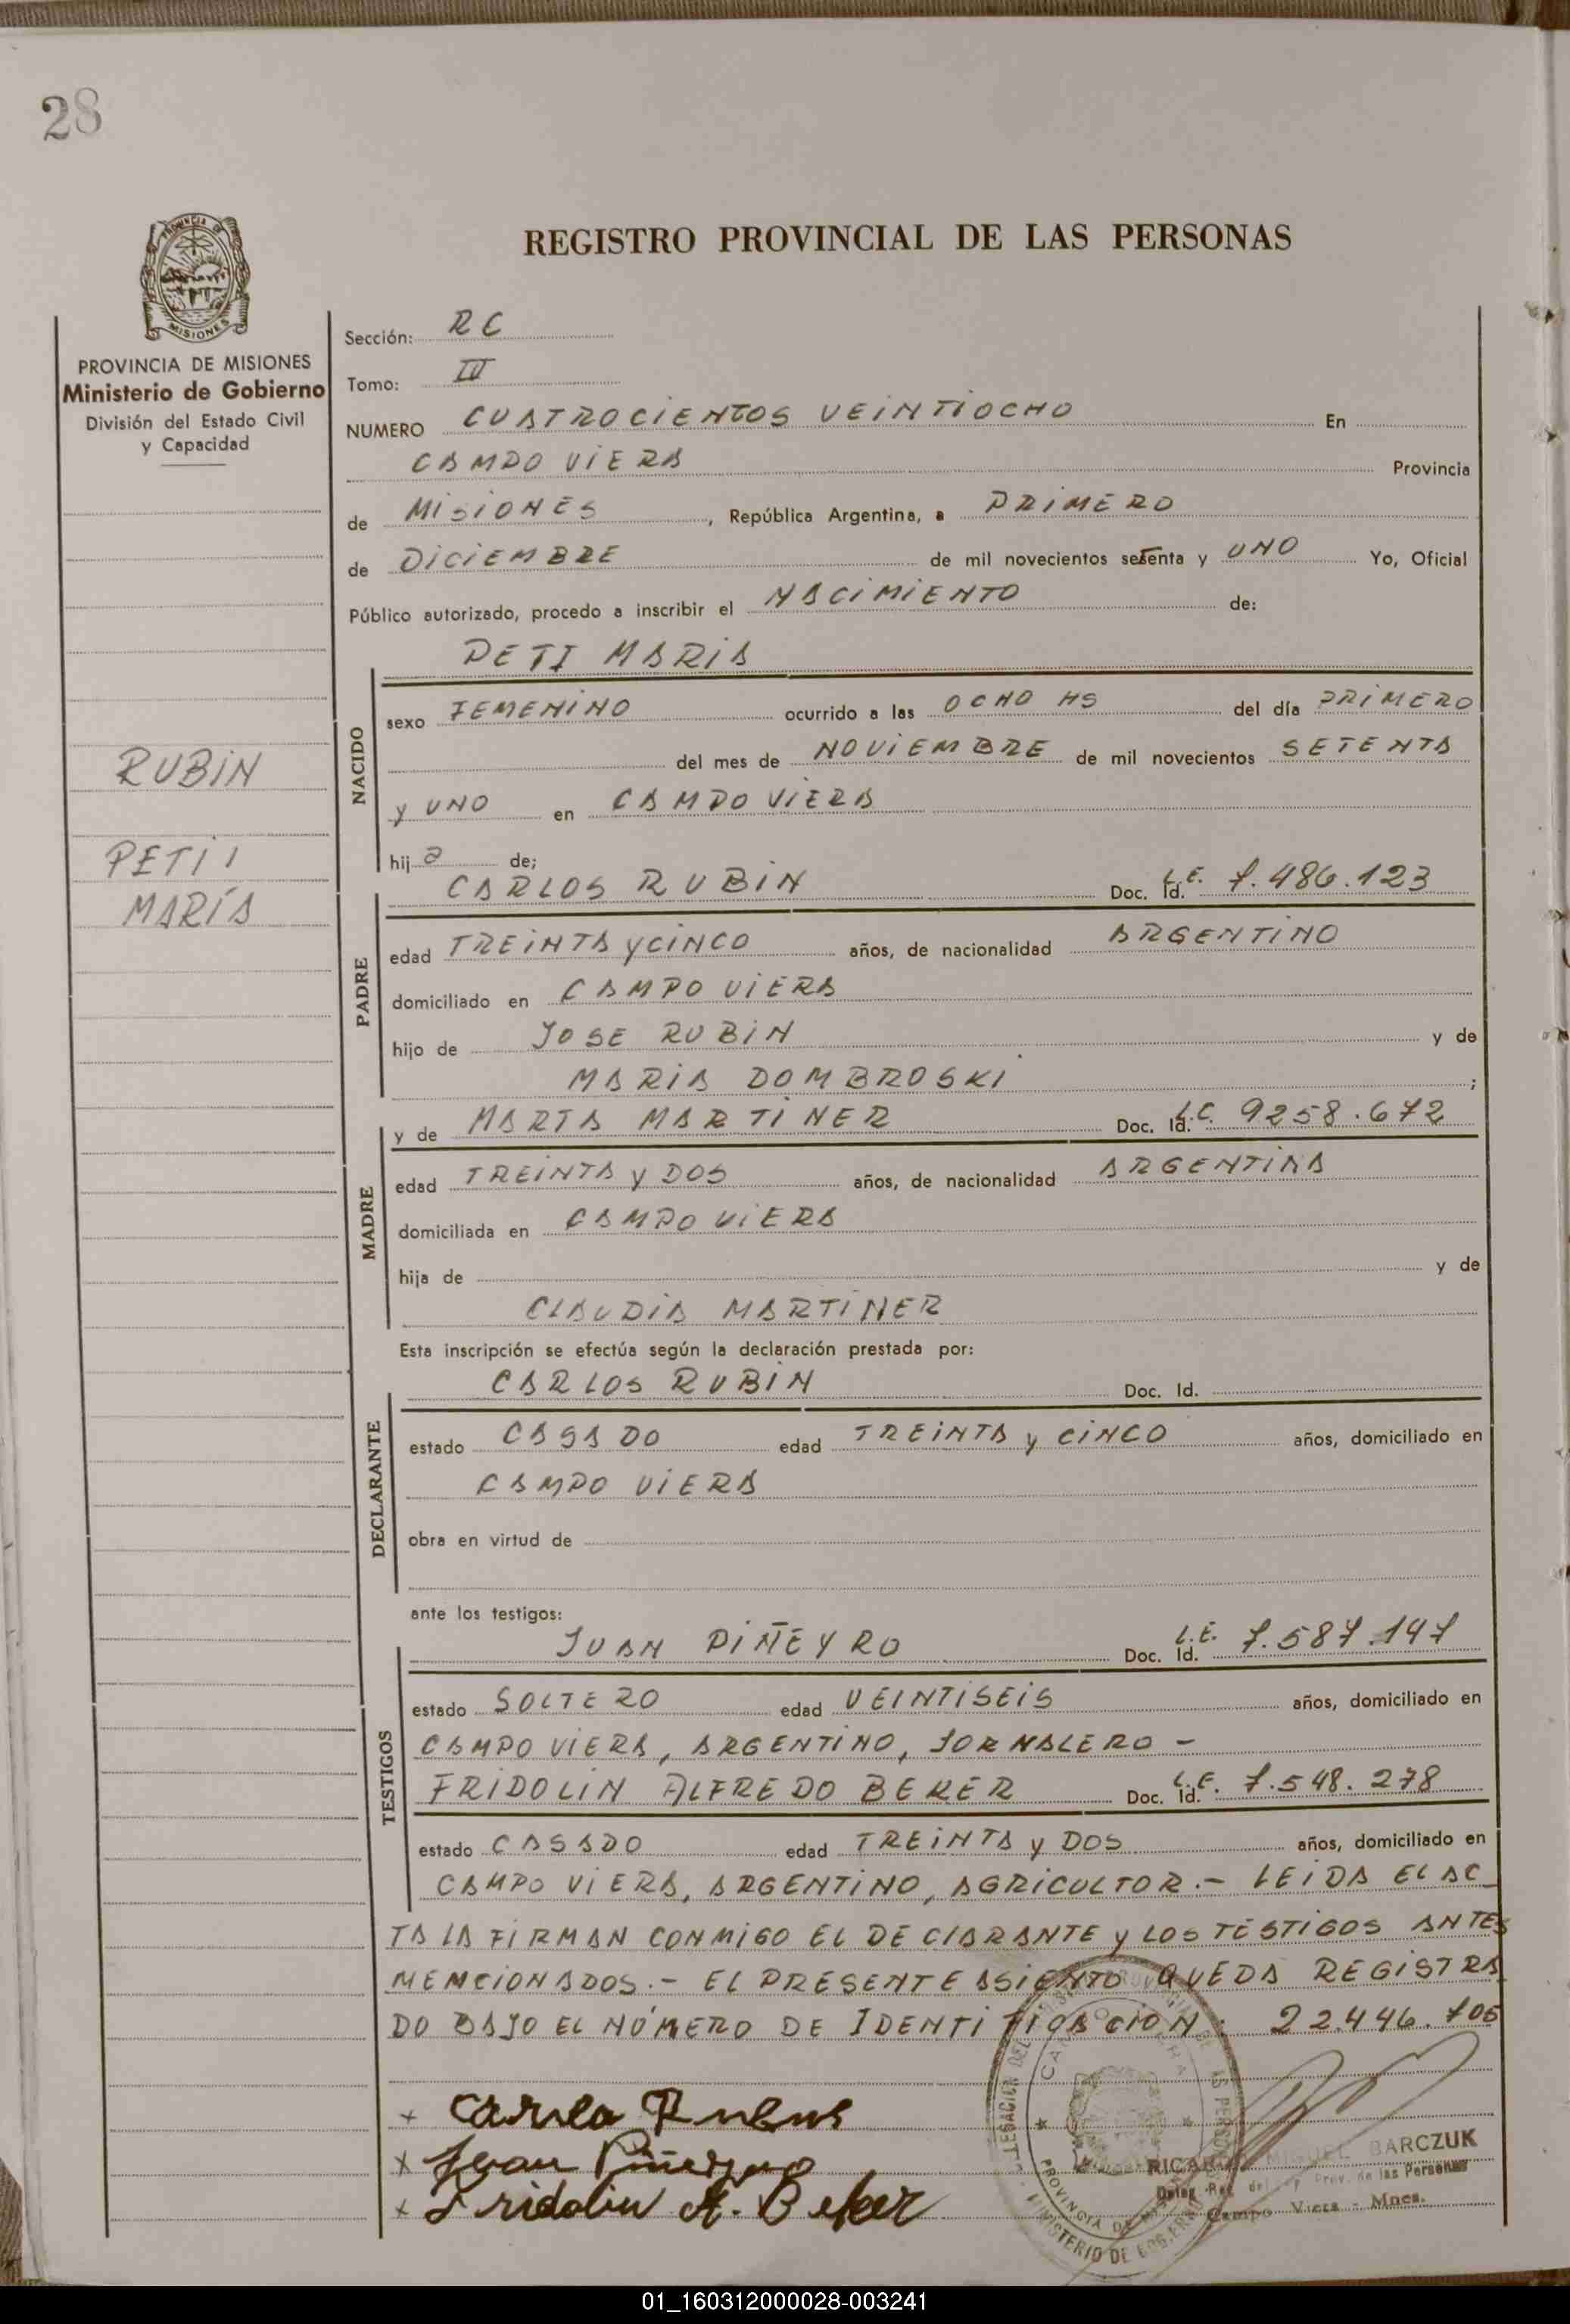 28
PROVINCIA DE
MISIONES
PROVINCIA DE MISIONES
Ministerio de Gobierno
División del Estado Civil
y Capacidad
RUBIN
PETI
MARÍA
REGISTRO PROVINCIAL DE LAS PERSONAS
Sección: RC
Tomo: IV
NUMERO CUATROCIENTOS VEINTIOCHO En
CAMPO VIERA Provincia
de MISIONES, República Argentina, a PRIMERO
de DICIEMBRE de mil novecientos setenta y UNO Yo, Oficial
Público autorizado, procedo a inscribir el NACIMIENTO de:
PETI MARIA
NACIDO
sexo FEMENINO ocurrido a las OCHO HS del día PRIMERO
del mes de NOVIEMBRE de mil novecientos SETENTA
y UNO en CAMPO VIERA
hija de;
CARLOS RUBIN Doc. Id. L.E. 7.486.123
PADRE
edad TREINTA y CINCO años, de nacionalidad ARGENTINO
domiciliado en CAMPO VIERA
hijo de JOSE RUBIN y de
MARIA DOMBROSKI ;
y de MARTA MARTINER Doc. Id. L.C. 9258.672
MADRE
edad TREINTA y DOS años, de nacionalidad ARGENTINA
domiciliada en CAMPO VIERA
hija de y de
CLAUDIA MARTINER
Esta inscripción se efectúa según la declaración prestada por:
CARLOS RUBIN Doc. Id.
DECLARANTE
estado CASADO edad TREINTA y CINCO años, domiciliado en
CAMPO VIERA
obra en virtud de
ante los testigos:
JUAN PIÑEYRO Doc. Id. L.E. 7.587.147
TESTIGOS
estado SOLTERO edad VEINTISEIS años, domiciliado en
CAMPO VIERA, ARGENTINO, JORNALERO -
FRIDOLIN ALFREDO BEKER Doc. Id. L.E. 7.548.278
estado CASADO edad TREINTA y DOS años, domiciliado en
CAMPO VIERA, ARGENTINO, AGRICULTOR.- LEIDA EL AC_
TA LA FIRMAN CONMIGO EL DECLARANTE y LOS TESTIGOS ANTES
MENCIONADOS.- EL PRESENTE ASIENTO QUEDA REGISTRA
DO BAJO EL NÚMERO DE IDENTIFICACION: 22.446.706
x Carlos Rubin
x Juan Piñeyro
x Fridolin A. Beker
MINISTERIO DE
PROVINCIA DE
MIGUEL BARCZUK
Prov. de las Personas
Campo Viera - Mnes.
01_160312000028-003241